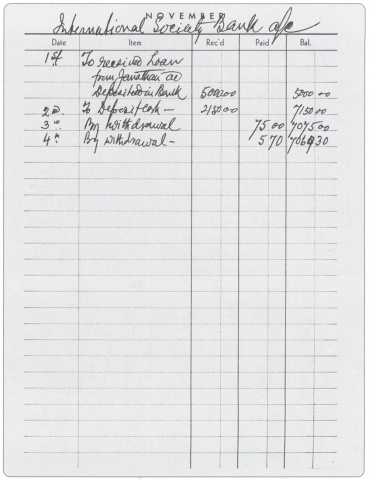 NOVEMBER
International Society Bank a/c
Date Item Rec'd Paid Bal.
1st To received Loan
from Jonathan as
Deposited in Bank 5000 00 5000 00
2nd To Deposit Cash — 2150 00 7150 00
3rd By Withdrawal 75 00 7075 00
4th By withdrawal - 5 70 7069 30